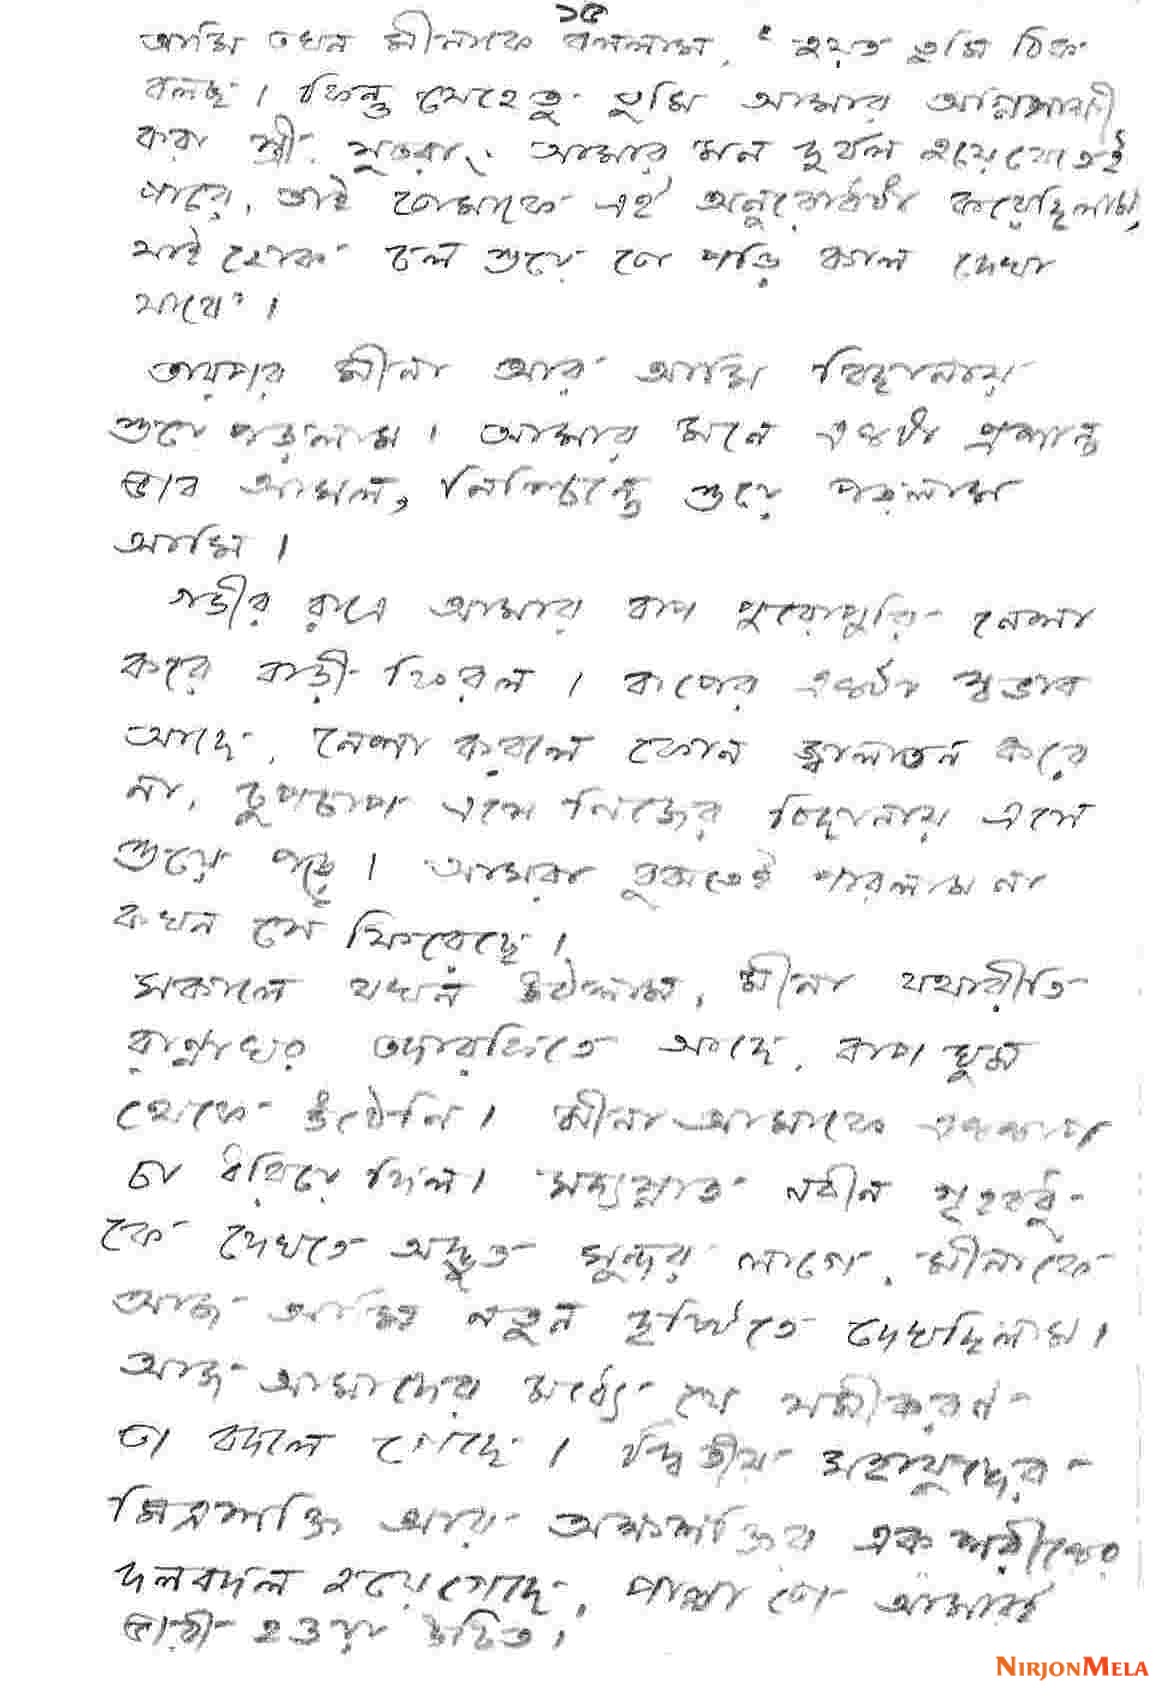 ১৫
আমি তখন মীনাকে বললাম, "হয়ত তুমি ঠিক
বলছ। কিন্তু যেহেতু তুমি আমার অগ্নিসাক্ষী
করা স্ত্রী, সুতরাং আমার মন দুর্বল হয়ে যেতেই
পারে, তাই তোমাকে এই অনুরোধটা করেছিলাম,
যাই হোক চল শুয়ে তো পড়ি কাল দেখা
যাবে"।
তারপর মীনা আর আমি বিছানায়
শুয়ে পড়লাম। আমার মনে একটা প্রশান্ত
ভাব আসল, নিশ্চিন্তে শুয়ে পড়লাম
আমি।
গভীর রাত্রে আমার বাপ পুরোপুরি নেশা
করে বাড়ী ফিরল। বাপের একটা স্বভাব
আছে, নেশা করলে কোন জ্বালাতন করে
না, চুপচাপ এসে নিজের বিছানায় এসে
শুয়ে পড়ে। আমরা বুঝতেই পারলাম না
কখন সে ফিরেছে।
সকালে যখন উঠলাম, মীনা যথারীতি
রান্নাঘর তদারকিতে আছে, বাপ ঘুম
থেকে উঠেনি। মীনা আমাকে এককাপ
চা ধরিয়ে দিল। সদ্যস্নাত নবীন গৃহবধু
কে দেখতে অদ্ভুত সুন্দর লাগে, মীনাকে
আজ আমি নতুন দৃষ্টিতে দেখছিলাম।
আজ আমাদের মধ্যে যে সমীকরন
তা বদলে গেছে। দ্বিতীয় মহাযুদ্ধের
মিত্রশক্তি আর অক্ষশক্তির এক শরীকের
দলবদল হয়ে গেছে, পাল্লা তো আমারই
ভারী হওয়া উচিত।
NIRJONMELA